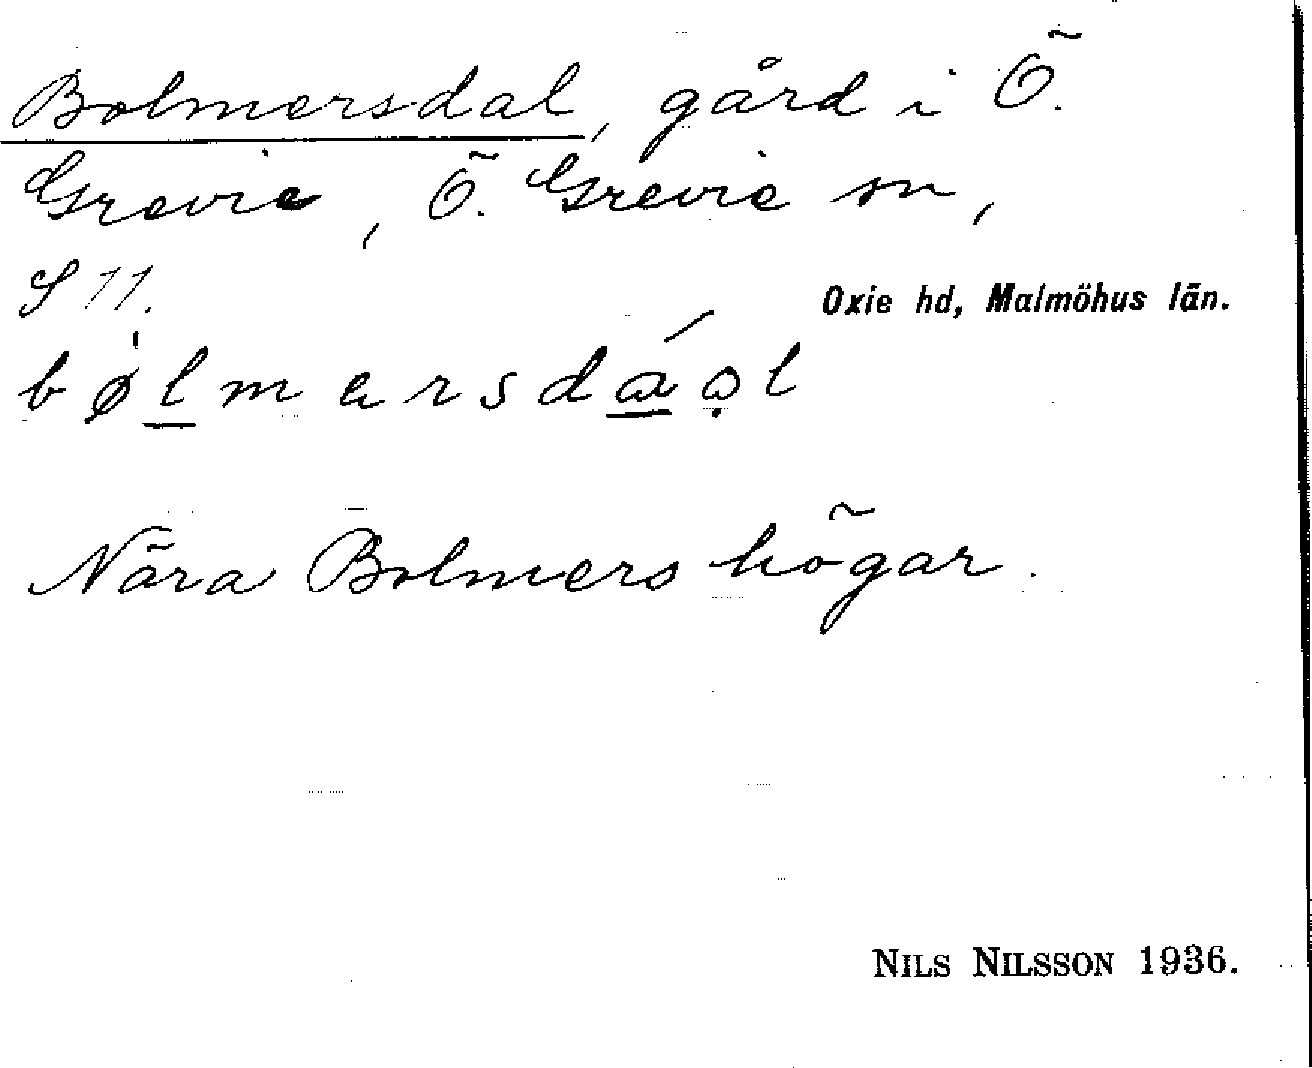 Bolmersdal, gård i Ö.
Grevie, Ö. Grevie sn,
S 11.
Oxie hd, Malmöhus län.
bølmersdáꜵl
Nära Bolmers högar.
NILS NILSSON 1936.